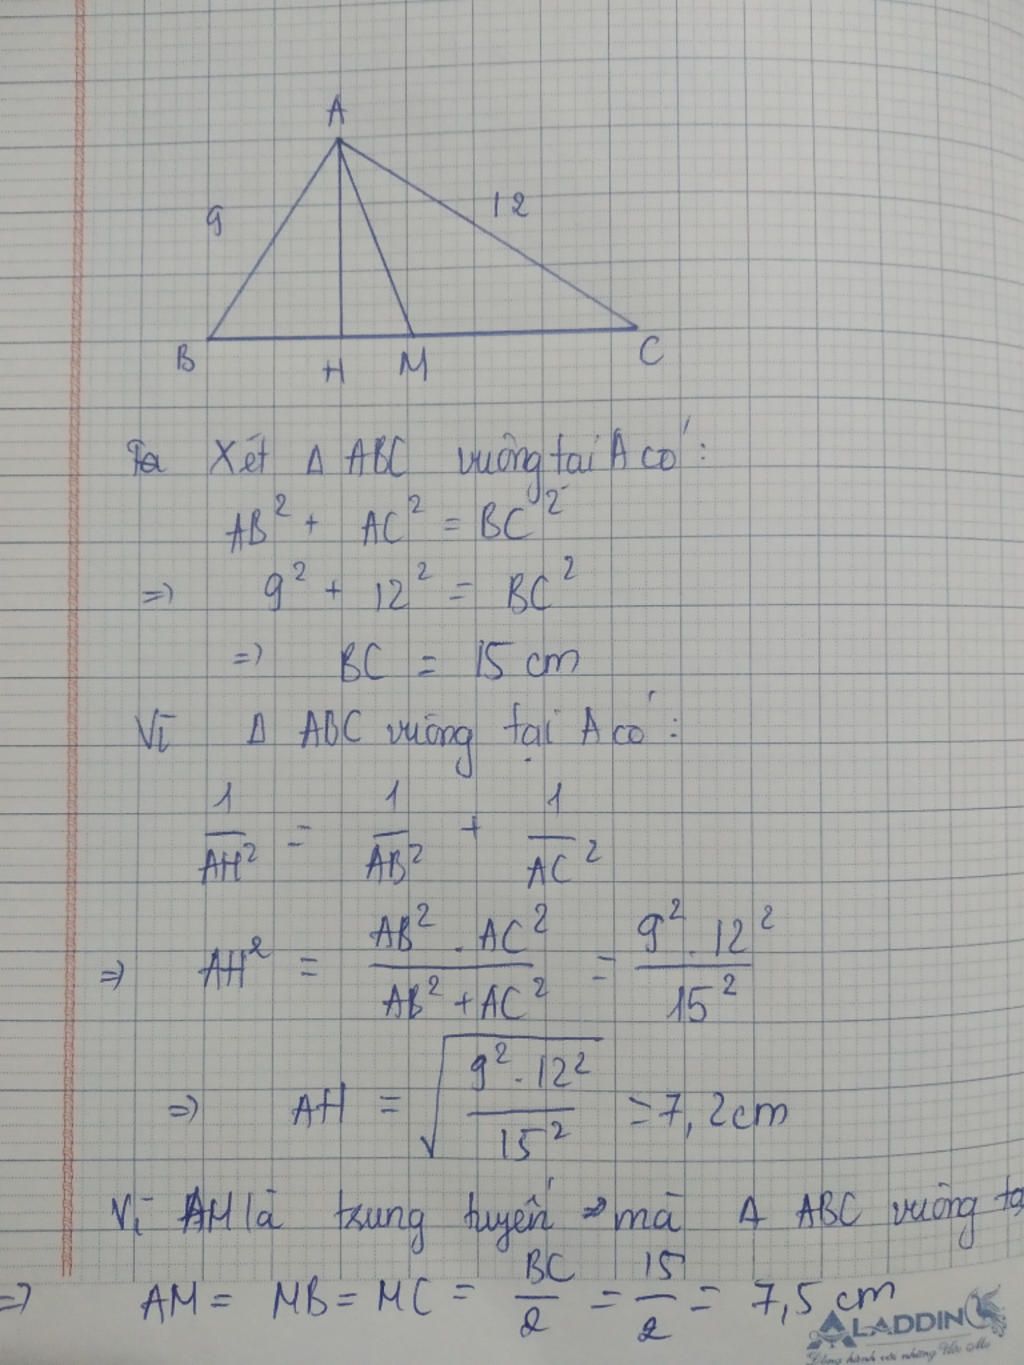 A
9
12
B
H
M
C
Ta Xét Δ ABC vuông tại A có:
AB² + AC² = BC²
=> 9² + 12² = BC²
=> BC = 15 cm
Vì Δ ABC vuông tại A có:
1/AH² = 1/AB² + 1/AC²
=> AH² = AB² . AC² / AB² + AC² = 9² . 12² / 15²
=> AH = √(9² . 12² / 15²) = 7,2 cm
Vì AM là trung tuyến mà Δ ABC vuông tạ
=> AM = MB = MC = BC/2 = 15/2 = 7,5 cm
ALADDIN
Đồng hành với những Ước Mơ